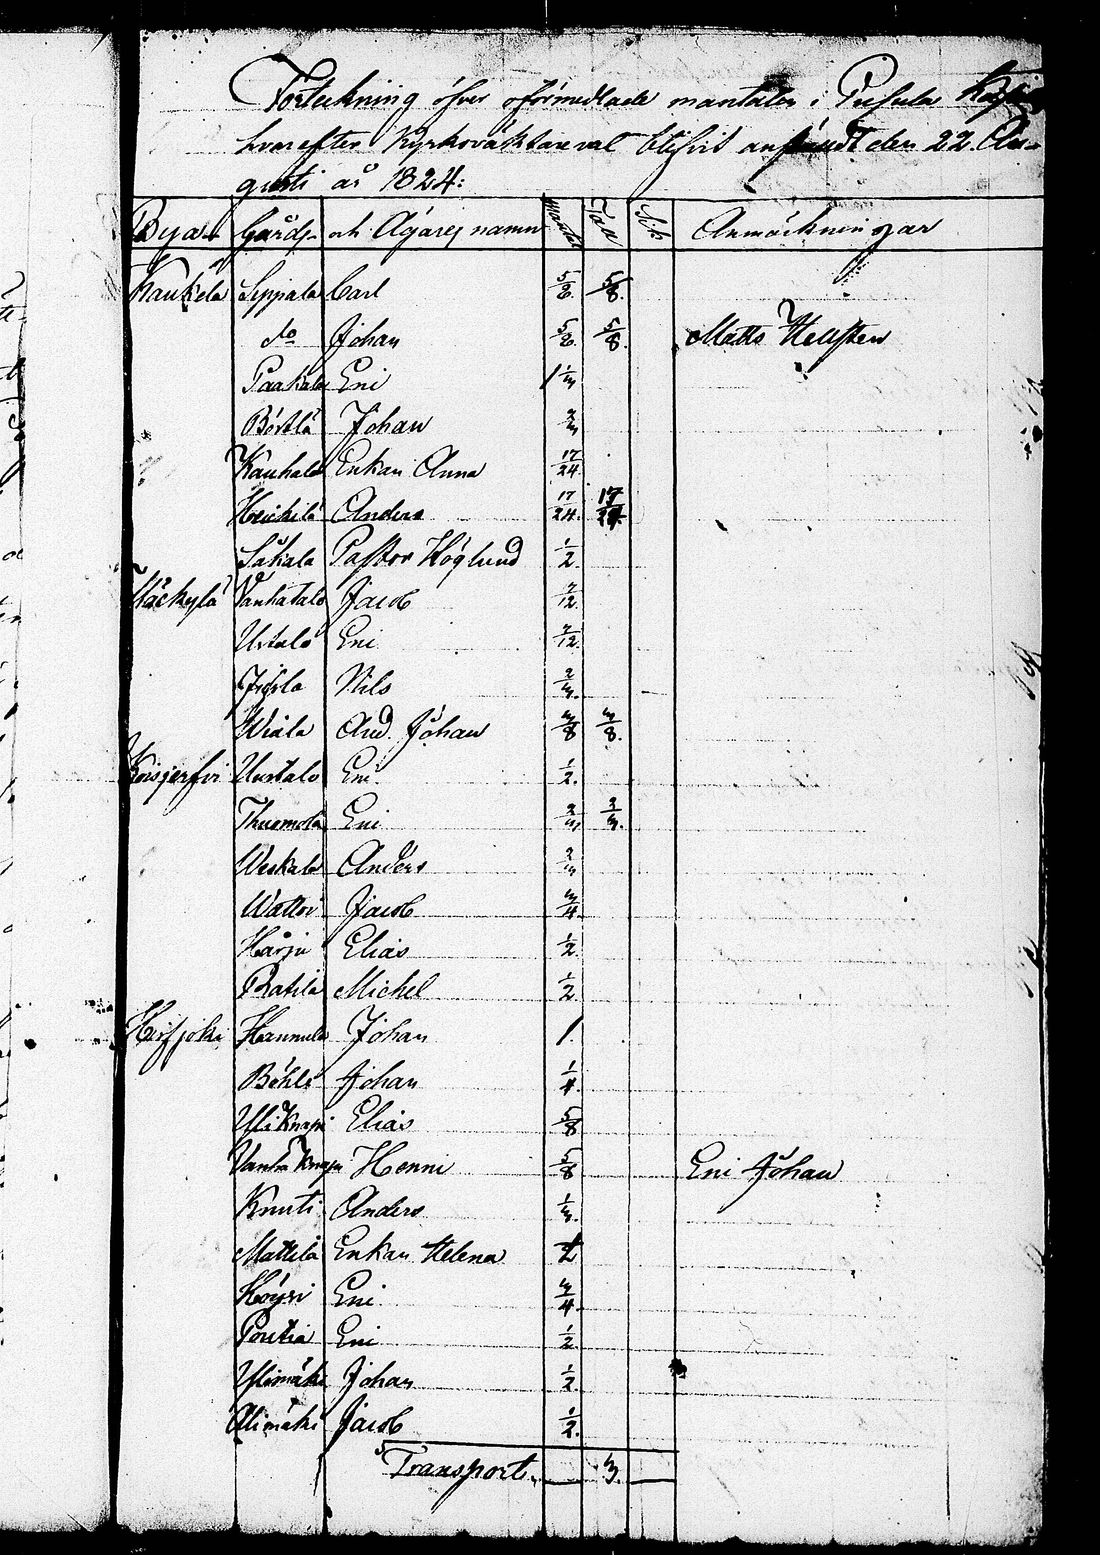 Förteckning öfver oförmedlade mantalen i Pusula
hvarefter Kyrkoväktareval blifvit anstäldt den 22. Au-
gusti år 1824:
Byar Gårds- och Ägares namn Mantal Tall Sik Anmärkningar
Kaukela Seppala Carl 5/6. 5/8.
do Johan 5/6. 5/8. Matts Hellsten
Paakala Eni 1 1/3
Börtlä Johan 2/3
Kauhala Enkan Anna 17/24.
Heickilä Anders 17/24. 17/24
Säkala Pastor Höglund 1/2.
Häckylä Vanhatalo Jacob 7/12.
Ustalo Eni 7/12.
Jösla Nils 2/3.
Wiala And. Johan 3/8 3/8.
Koisjerfvi Uustalo Eni 1/2.
Thuomola Eni 2/3 2/3.
Weskala Anders 2/3
Wattoi Jacob 3/4.
Harju Elias 1/2.
Ratila Michel 1/2.
Hirsjoki Hannula Johan 1.
Böhle Johan 1/4.
Yli Knapi Elias 5/8
Vanha Knapi Henric 5/8 Eni Johan
Knuti Anders 1/3.
Mattila Enkan Helena 1/2
Höysi Eni 3/4.
Poutia Eni 1/2
Ylimäki Johan 1/2
Alimäki Jacob 1/2.
Transport. 3.